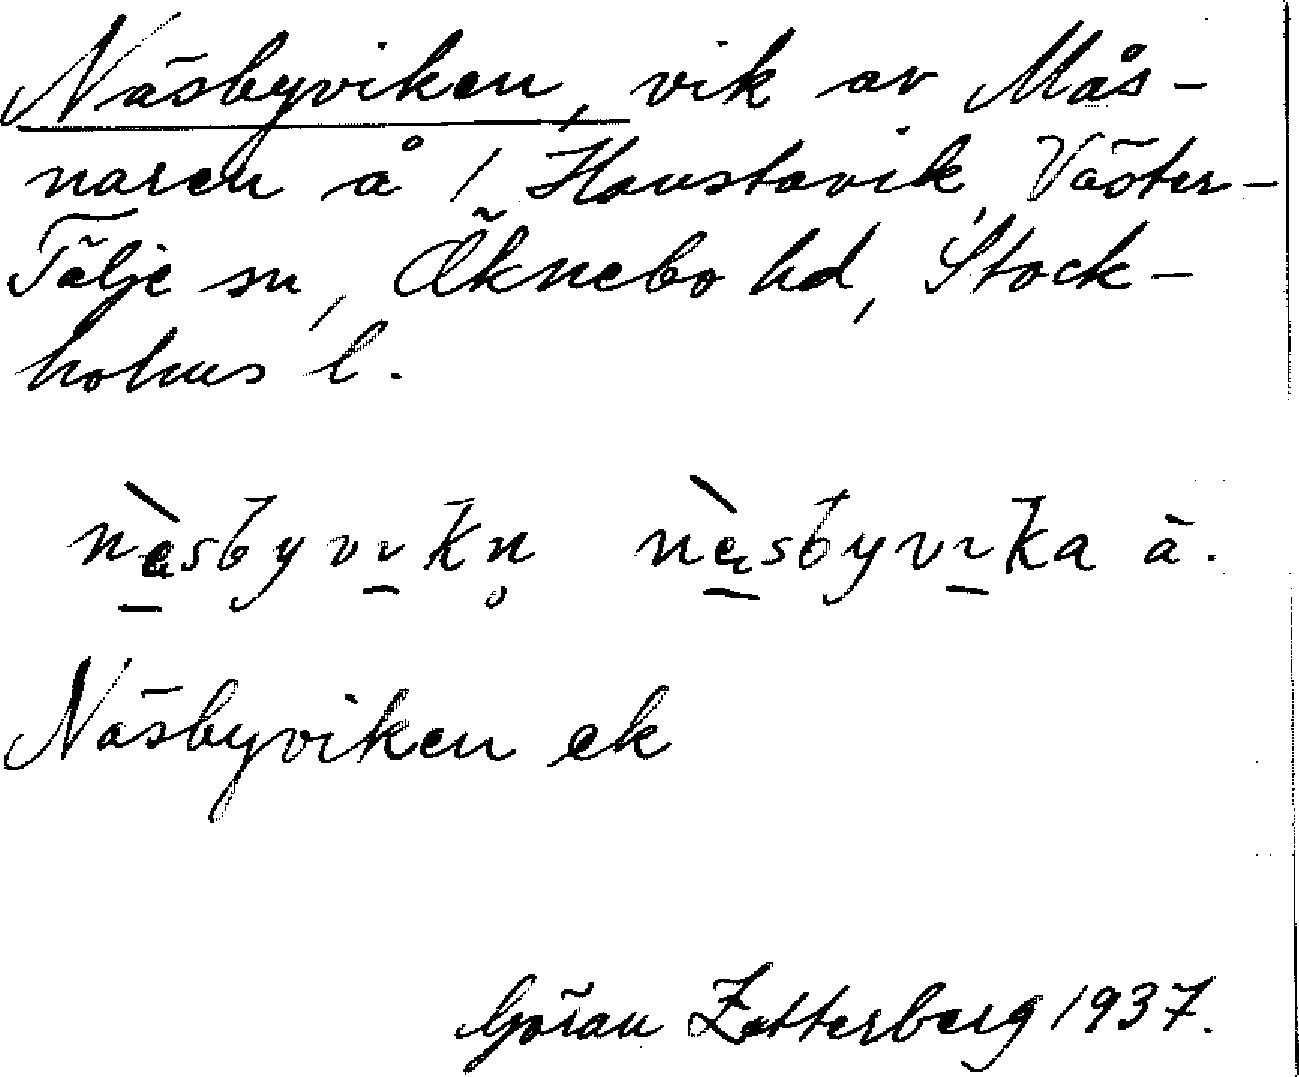 Näsbyviken, vik av Mås-
naren å 1 Hovstavik, Väster-
Tälje sn, Öknebo hd, Stock-
holms l.
näsbyvikn näsbyvika ä.
Näsbyviken ek
Göran Zetterberg 1937.